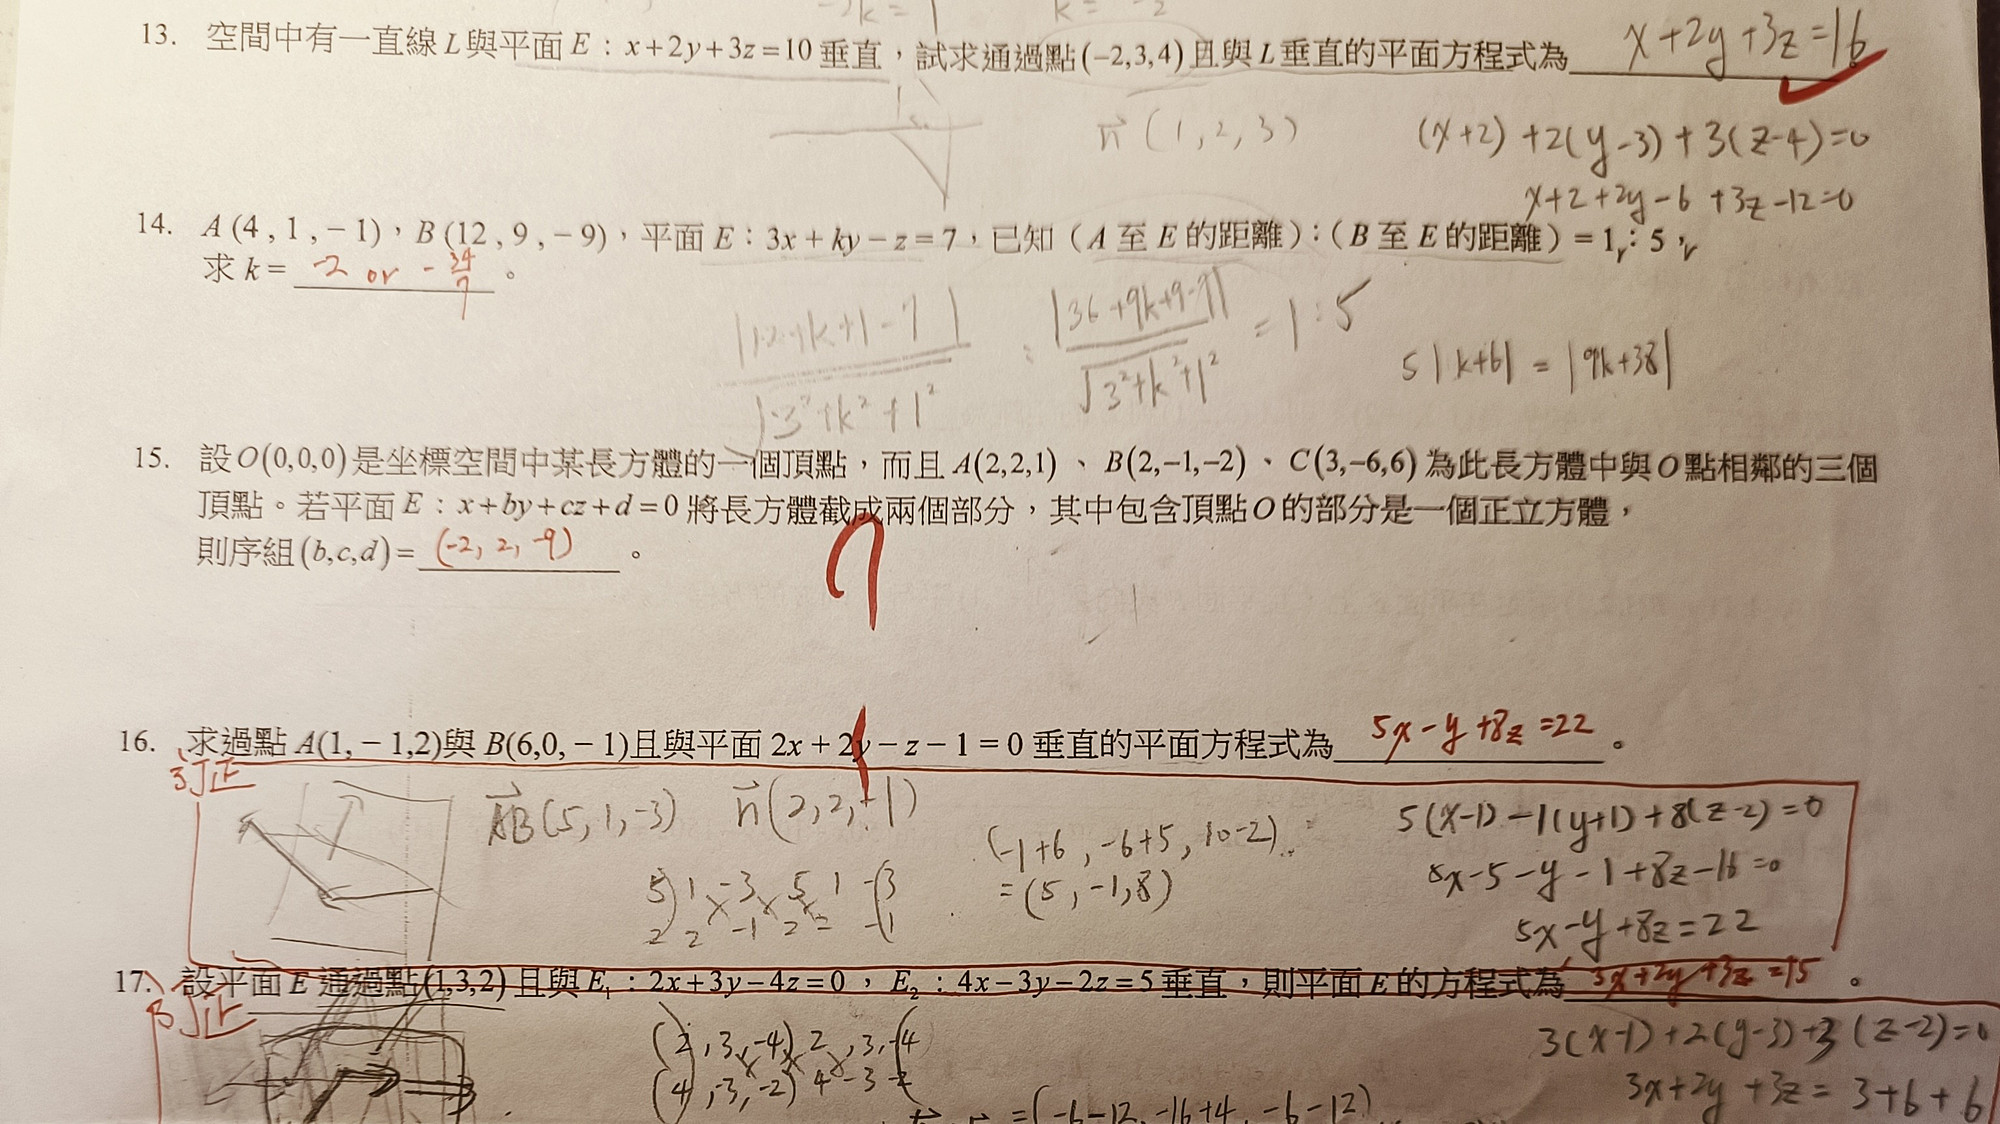 13. 空間中有一直線L與平面E:x+2y+3z=10垂直,試求通過點(-2,3,4)且與L垂直的平面方程式為 x+2y+3z=16
n(1,2,3)
(x+2)+2(y-3)+3(z-4)=0
x+2+2y-6+3z-12=0
14. A(4,1,-1),B(12,9,-9),平面E:3x+ky-z=7,已知(A至E的距離):(B至E的距離)=1:5,
求k= -2 or -34/7 。
|12+k+1-7|/√3²+k²+1² : |36+9k+9-7|/√3²+k²+1² = 1:5
5|k+6|=|9k+38|
15. 設O(0,0,0)是坐標空間中某長方體的一個頂點,而且A(2,2,1)、B(2,-1,-2)、C(3,-6,6)為此長方體中與O點相鄰的三個
頂點。若平面E:x+by+cz+d=0將長方體截成兩個部分,其中包含頂點O的部分是一個正立方體,
則序組(b,c,d)= (-2,2,-9) 。
16. 求過點A(1,-1,2)與B(6,0,-1)且與平面2x+2y-z-1=0垂直的平面方程式為 5x-y+8z=22 。
訂正
AB(5,1,-3) n(2,2,-1)
5 1 -3 5 1 -3
2 2 -1 2 2 -1
(-1+6,-6+5,10-2)
=(5,-1,8)
5(x-1)-1(y+1)+8(z-2)=0
5x-5-y-1+8z-16=0
5x-y+8z=22
17. 設平面E通過點(1,3,2)且與E₁:2x+3y-4z=0,E₂:4x-3y-2z=5垂直,則平面E的方程式為 3x+2y+3z=15 。
訂正
(2,3,-4) 2,3,-4
(4,-3,-2) 4 -3 -2
=(-6-12,-16+4,-6-12)
3(x-1)+2(y-3)+3(z-2)=0
3x+2y+3z=3+6+6